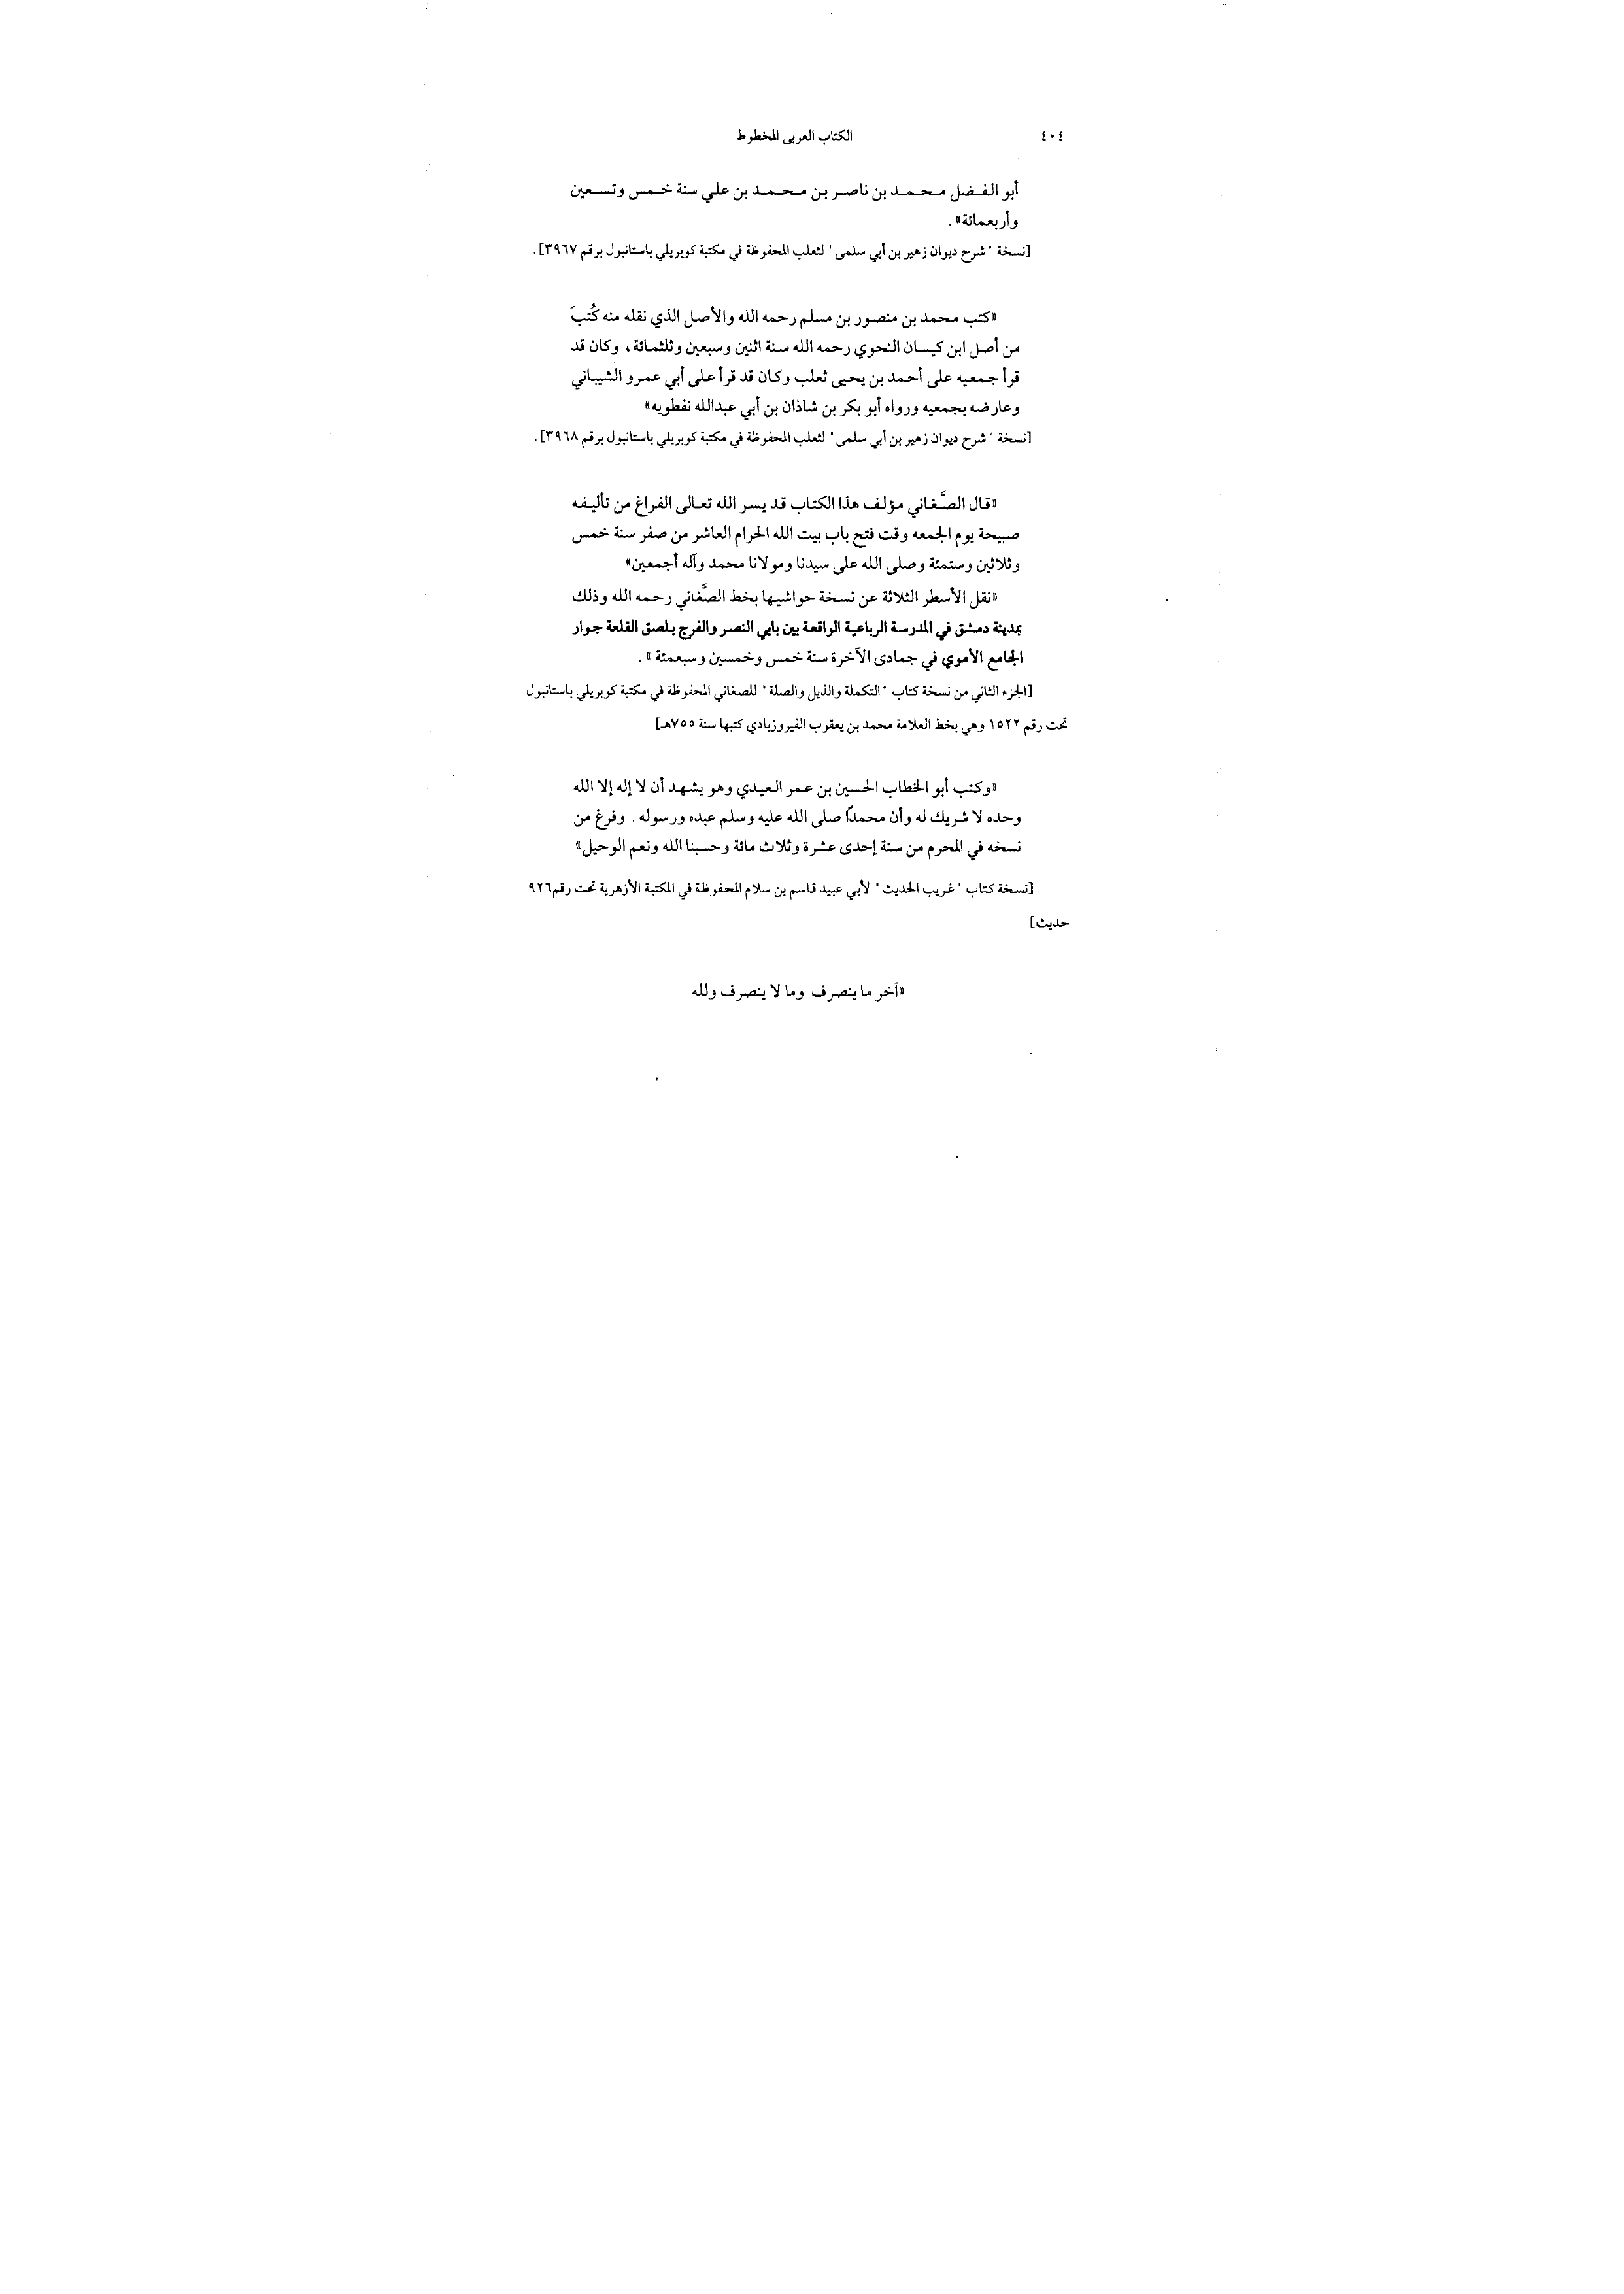 ٤٠٤ الكتاب العربى المخطوط
أبو الفضل محمد بن ناصر بن محمد بن علي سنة خمس وتسعين
وأربعمائة».
[نسخة "شرح ديوان زهير بن أبي سلمى" لثعلب المحفوظة في مكتبة كوبريلي باستانبول برقم ٣٩٦٧].
«كتب محمد بن منصور بن مسلم رحمه الله والأصل الذي نقله منه كُتبَ
من أصل ابن كيسان النحوي رحمه الله سنة اثنين وسبعين وثلثمائة، وكان قد
قرأ جمعيه على أحمد بن يحيى ثعلب وكان قد قرأ على أبي عمرو الشيباني
وعارضه بجمعيه ورواه أبو بكر بن شاذان بن أبي عبدالله نفطويه»
[نسخة "شرح ديوان زهير بن أبي سلمى" لثعلب المحفوظة في مكتبة كوبريلي باستانبول برقم ٣٩٦٨].
«قال الصَّغاني مؤلف هذا الكتاب قد يسر الله تعالى الفراغ من تأليفه
صبيحة يوم الجمعه وقت فتح باب بيت الله الحرام العاشر من صفر سنة خمس
وثلاثين وستمئة وصلى الله على سيدنا ومولانا محمد وآله أجمعين»
«نقل الأسطر الثلاثة عن نسخة حواشيها بخط الصَّغاني رحمه الله وذلك
بمدينة دمشق في المدرسة الرباعية الواقعة بين بابي النصر والفرج بلصق القلعة جوار
الجامع الأموي في جمادى الآخرة سنة خمس وخمسين وسبعمئة».
[الجزء الثاني من نسخة كتاب "التكملة والذيل والصلة" للصغاني المحفوظة في مكتبة كوبريلي باستانبول
تحت رقم ١٥٢٢ وهي بخط العلامة محمد بن يعقوب الفيروزبادي كتبها سنة ٧٥٥هـ]
«وكتب أبو الخطاب الحسين بن عمر العيدي وهو يشهد أن لا إله إلا الله
وحده لا شريك له وأن محمدًا صلى الله عليه وسلم عبده ورسوله. وفرغ من
نسخه في المحرم من سنة إحدى عشرة وثلاث مائة وحسبنا الله ونعم الوحيل»
[نسخة كتاب "غريب الحديث" لأبي عبيد قاسم بن سلام المحفوظة في المكتبة الأزهرية تحت رقم ٩٢٦
حديث]
«آخر ما ينصرف وما لا ينصرف ولله